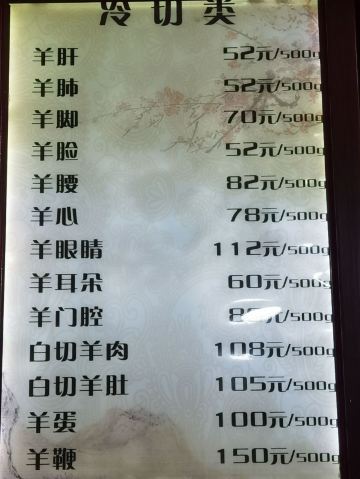 冷切类
羊肝 52元/500g
羊肺 52元/500g
羊脚 70元/500g
羊脸 52元/500g
羊腰 82元/500g
羊心 78元/500g
羊眼睛 112元/500g
羊耳朵 60元/500g
羊门腔 元/500g
白切羊肉 108元/500g
白切羊肚 105元/500g
羊蛋 100元/500g
羊鞭 150元/500g